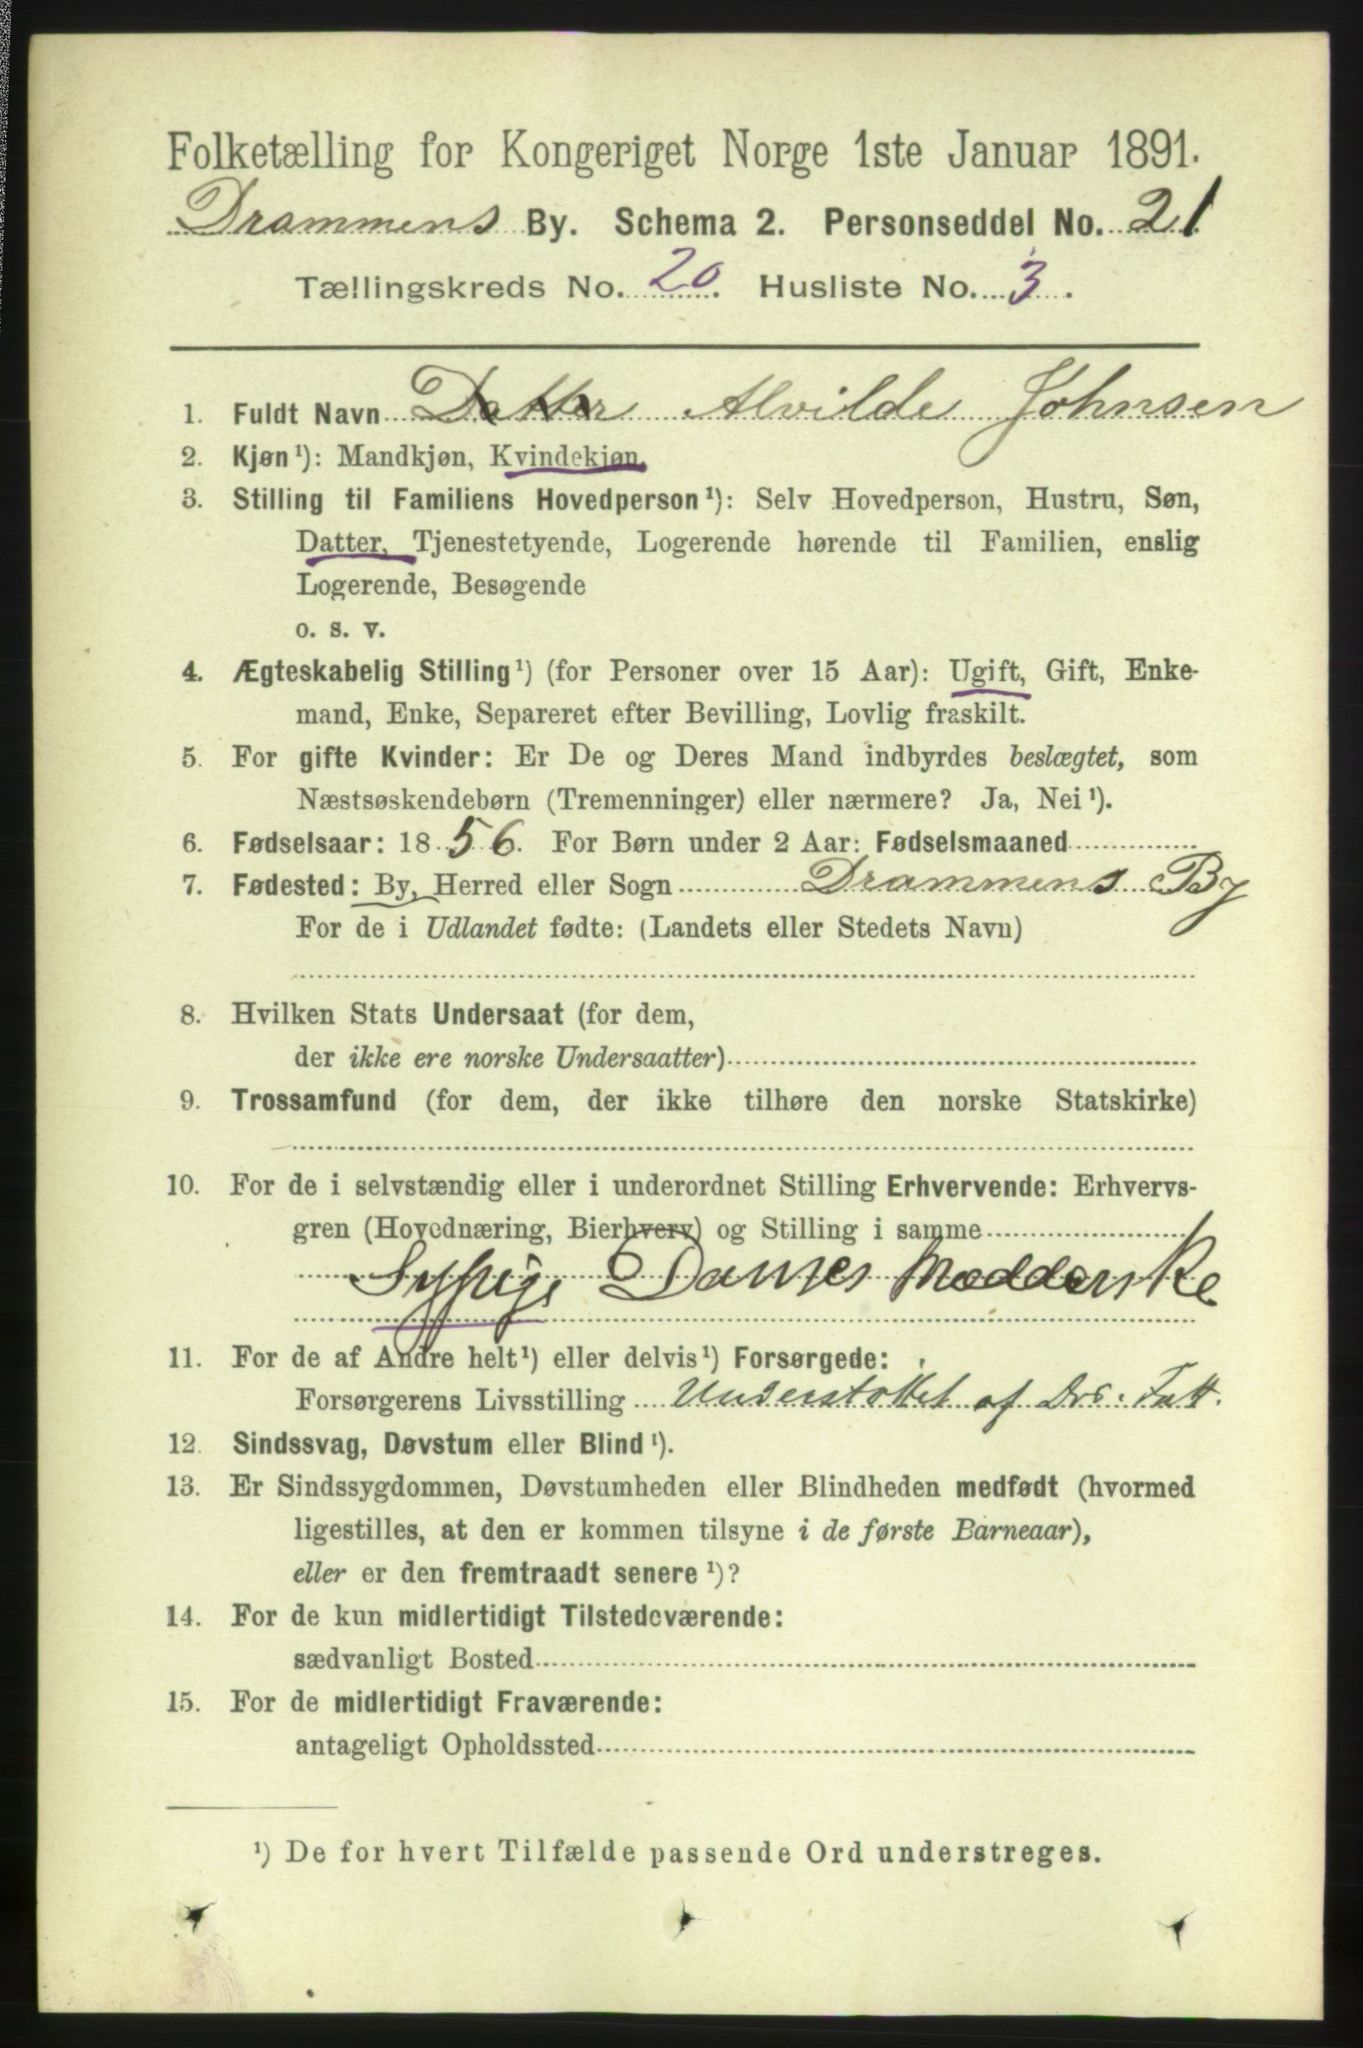 Folketælling for Kongeriget Norge 1ste Januar 1891.
Drammens By. Schema 2. Personseddel No. 21
Tællingskreds No. 20. Husliste No. 3.
1. Fuldt Navn Datter Alvilde Johnsen
2. Kjøn¹): Mandkjøn, Kvindekjøn.
3. Stilling til Familiens Hovedperson¹): Selv Hovedperson, Hustru, Søn,
Datter, Tjenestetyende, Logerende hørende til Familien, enslig
Logerende, Besøgende
o. s. v.
4. Ægteskabelig Stilling¹) (for Personer over 15 Aar): Ugift, Gift, Enke-
mand, Enke, Separeret efter Bevilling, Lovlig fraskilt.
5. For gifte Kvinder: Er De og Deres Mand indbyrdes beslægtet, som
Næstsøskendebørn (Tremenninger) eller nærmere? Ja, Nei¹).
6. Fødselsaar: 1856. For Børn under 2 Aar: Fødselsmaaned
7. Fødested: By, Herred eller Sogn Drammens By
For de i Udlandet fødte: (Landets eller Stedets Navn)
8. Hvilken Stats Undersaat (for dem,
der ikke ere norske Undersaatter)
9. Trossamfund (for dem, der ikke tilhøre den norske Statskirke)
10. For de i selvstændig eller i underordnet Stilling Erhvervende: Erhvervs-
gren (Hovednæring, Bierhverv) og Stilling i samme
Sypige
11. For de af Andre helt¹) eller delvis¹) Forsørgede:
Forsørgerens Livsstilling Understøttet af Drs. Fatt.
12. Sindssvag, Døvstum eller Blind¹).
13. Er Sindssygdommen, Døvstumheden eller Blindheden medfødt (hvormed
ligestilles, at den er kommen tilsyne i de første Barneaar),
eller er den fremtraadt senere¹)?
14. For de kun midlertidigt Tilstedeværende:
sædvanligt Bosted
15. For de midlertidigt Fraværende:
antageligt Opholdssted
¹) De for hvert Tilfælde passende Ord understreges.